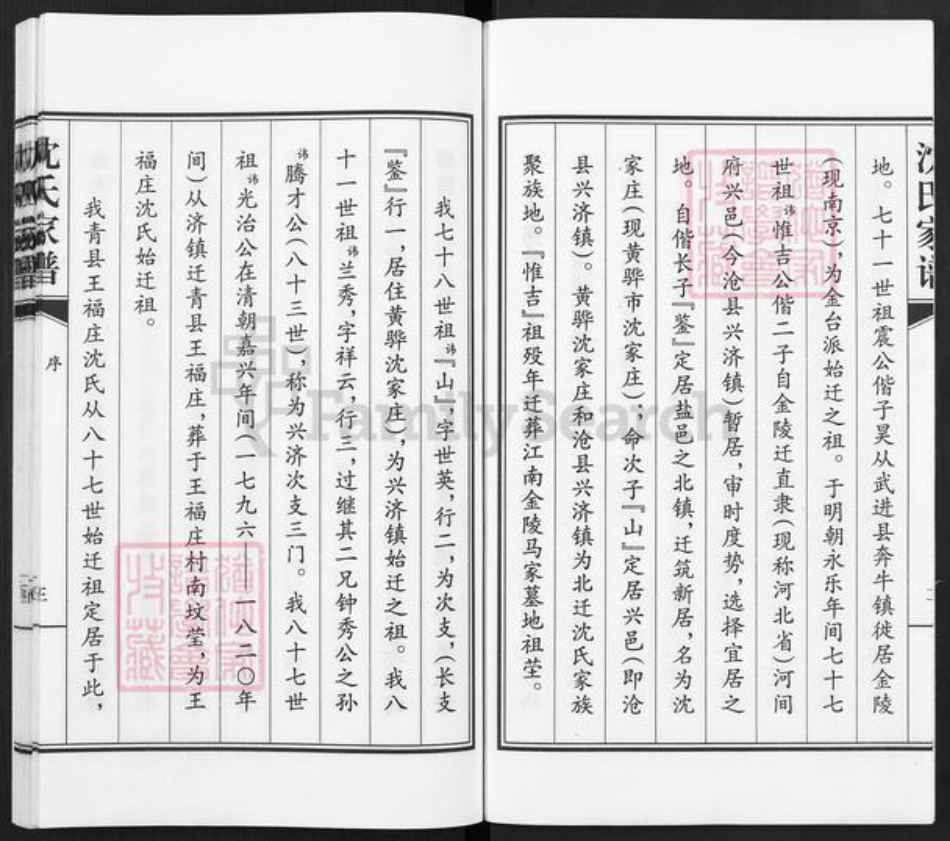 沈氏家谱
地。七十一世祖震公偕子昊从武进县奔牛镇徙居金陵
(现南京),为金台派始迁之祖。于明朝永乐年间七十七
世祖讳惟吉公偕二子自金陵迁直隶(现称河北省)河间
府兴邑(今沧县兴济镇)暂居,审时度势,选择宜居之
地。自偕长子『鉴』定居盐邑之北镇,迁筑新居,名为沈
家庄(现黄骅市沈家庄),命次子『山』定居兴邑(即沧
县兴济镇)。黄骅沈家庄和沧县兴济镇为北迁沈氏家族
聚族地。『惟吉』祖殁年迁葬江南金陵马家墓地祖茔。
我七十八世祖讳『山』,字世英,行二,为次支,(长支
『鉴』行一,居住黄骅沈家庄),为兴济镇始迁之祖。我八
十一世祖讳兰秀,字祥云,行三,过继其二兄钟秀公之孙
讳腾才公(八十三世),称为兴济次支三门。我八十七世
祖讳光治公在清朝嘉兴年间(一七九六——一八二〇年
间)从济镇迁青县王福庄,葬于王福庄村南坟莹,为王
福庄沈氏始迁祖。
我青县王福庄沈氏从八十七世始迁祖定居于此,
沈氏家谱
序
三
FamilySearch